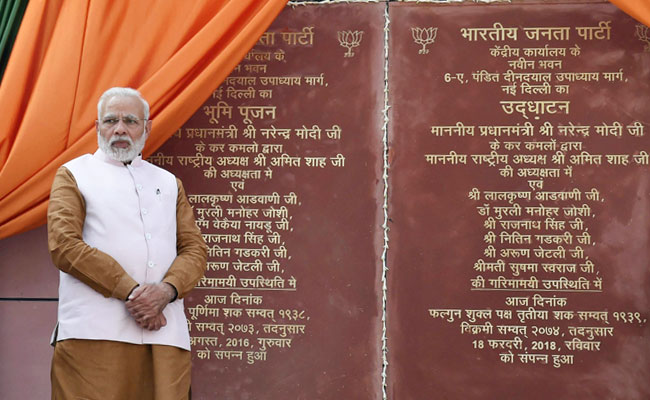 पार्टी
कार्यालय के
नवीन भवन
दीनदयाल उपाध्याय मार्ग,
नई दिल्ली का
भूमि पूजन
प्रधानमंत्री श्री नरेन्द्र मोदी जी
के कर कमलो द्वारा
राष्ट्रीय अध्यक्ष श्री अमित शाह जी
की अध्यक्षता मे
एवं
लालकृष्ण आडवाणी जी,
मुरली मनोहर जोशी,
वेंकैया नायडू जी,
राजनाथ सिंह जी,
नितिन गडकरी जी,
अरूण जेटली जी,
गरिमामयी उपस्थिति मे
आज दिनांक
पूर्णिमा शक सम्वत् १९३८,
सम्वत् २०७३, तदनुसार
अगस्त, 2016, गुरुवार
को संपन्न हुआ
भारतीय जनता पार्टी
केंद्रीय कार्यालय के
नवीन भवन
6-ए, पंडित दीनदयाल उपाध्याय मार्ग,
नई दिल्ली का
उद्धाटन
माननीय प्रधानमंत्री श्री नरेन्द्र मोदी जी
के कर कमलों द्वारा
माननीय राष्ट्रीय अध्यक्ष श्री अमित शाह जी
की अध्यक्षता में
एवं
श्री लालकृष्ण आडवाणी जी,
डॉ मुरली मनोहर जोशी,
श्री राजनाथ सिंह जी,
श्री नितिन गडकरी जी,
श्री अरूण जेटली जी,
श्रीमती सुषमा स्वराज जी,
की गरिमामयी उपस्थिति में
आज दिनांक
फल्गुन शुक्ल पक्ष तृतीया शक सम्वत् १९३९,
विक्रमी सम्वत् २०७४, तदनुसार
18 फरवरी, 2018, रविवार
को संपन्न हुआ